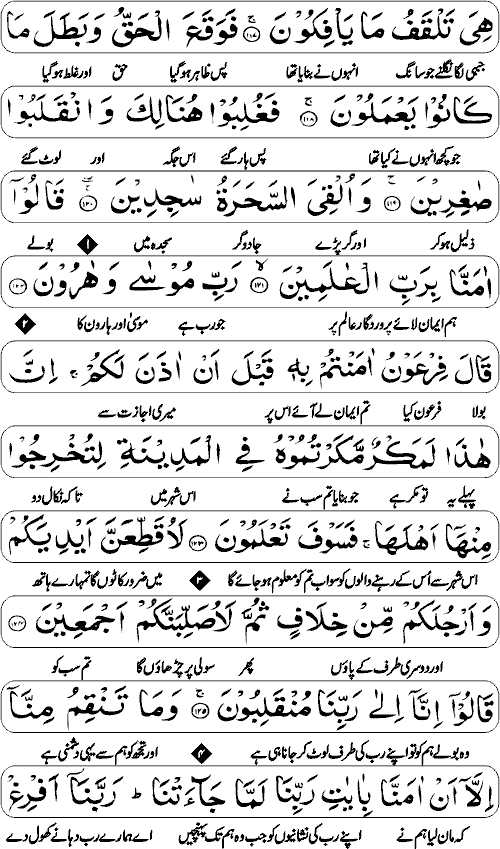 هِىَ تَلْقَفُ مَا يَاْفِكُوْنَ ﴿١١٧﴾ فَوَقَعَ الْحَقُّ وَبَطَلَ مَا
جبھی لگا نگلنے جو سانگ انہوں نے بنایا تھا پس ظاہر ہو گیا حق اور غلط ہو گیا
كَانُوْا يَعْمَلُوْنَ ﴿١١٨﴾ فَغُلِبُوْا هُنَالِكَ وَانْقَلَبُوْا
جو کچھ انہوں نے کیا تھا پس ہار گئے اس جگہ اور لوٹ گئے
صٰغِرِيْنَ ﴿١١٩﴾ وَاُلْقِىَ السَّحَرَةُ سٰجِدِيْنَ ﴿١٢٠﴾ قَالُوْٓا
ذلیل ہو کر اور گر پڑے جادوگر سجدہ میں ١ بولے
اٰمَنَّا بِرَبِّ الْعٰلَمِيْنَ ﴿١٢١﴾ رَبِّ مُوْسٰى وَهٰرُوْنَ ﴿١٢٢﴾
ہم ایمان لائے پروردگار عالم پر جو رب ہے موسٰی اور ہارون کا ٢
قَالَ فِرْعَوْنُ اٰمَنْتُمْ بِهٖ قَبْلَ اَنْ اٰذَنَ لَكُمْ ۚ اِنَّ
بولا فرعون کیا تم ایمان لے آئے اس پر میری اجازت سے
هٰذَا لَمَكْرٌ مَّكَرْتُمُوْهُ فِى الْمَدِيْنَةِ لِتُخْرِجُوْا
پہلے یہ تو مکر ہے جو بنایا تم سب نے اس شہر میں تاکہ نکال دو
مِنْهَآ اَهْلَهَا ۚ فَسَوْفَ تَعْلَمُوْنَ ﴿١٢٣﴾ لَاُقَطِّعَنَّ اَيْدِيَكُمْ
اس شہر سے اُس کے رہنے والوں کو سو اب تم کو معلوم ہو جائے گا ٣ میں ضرور کاٹوں گا تمہارے ہاتھ
وَاَرْجُلَكُمْ مِّنْ خِلَافٍ ثُمَّ لَاُصَلِّبَنَّكُمْ اَجْمَعِيْنَ ﴿١٢٤﴾
اور دوسری طرف کے پاؤں پھر سولی پر چڑھاؤں گا تم سب کو
قَالُوْٓا اِنَّآ اِلٰى رَبِّنَا مُنْقَلِبُوْنَ ﴿١٢٥﴾ وَمَا تَنْقِمُ مِنَّآ
وہ بولے ہم کو تو اپنے رب کی طرف لوٹ کر جانا ہی ہے ٤ اور تجھ کو ہم سے یہی دشمنی ہے
اِلَّآ اَنْ اٰمَنَّا بِاٰيٰتِ رَبِّنَا لَمَّا جَآءَتْنَا ؕ رَبَّنَآ اَفْرِغْ
کہ مان لیا ہم نے اپنے رب کی نشانیوں کو جب وہ ہم تک پہنچیں اے ہمارے رب دہانے کھول دے